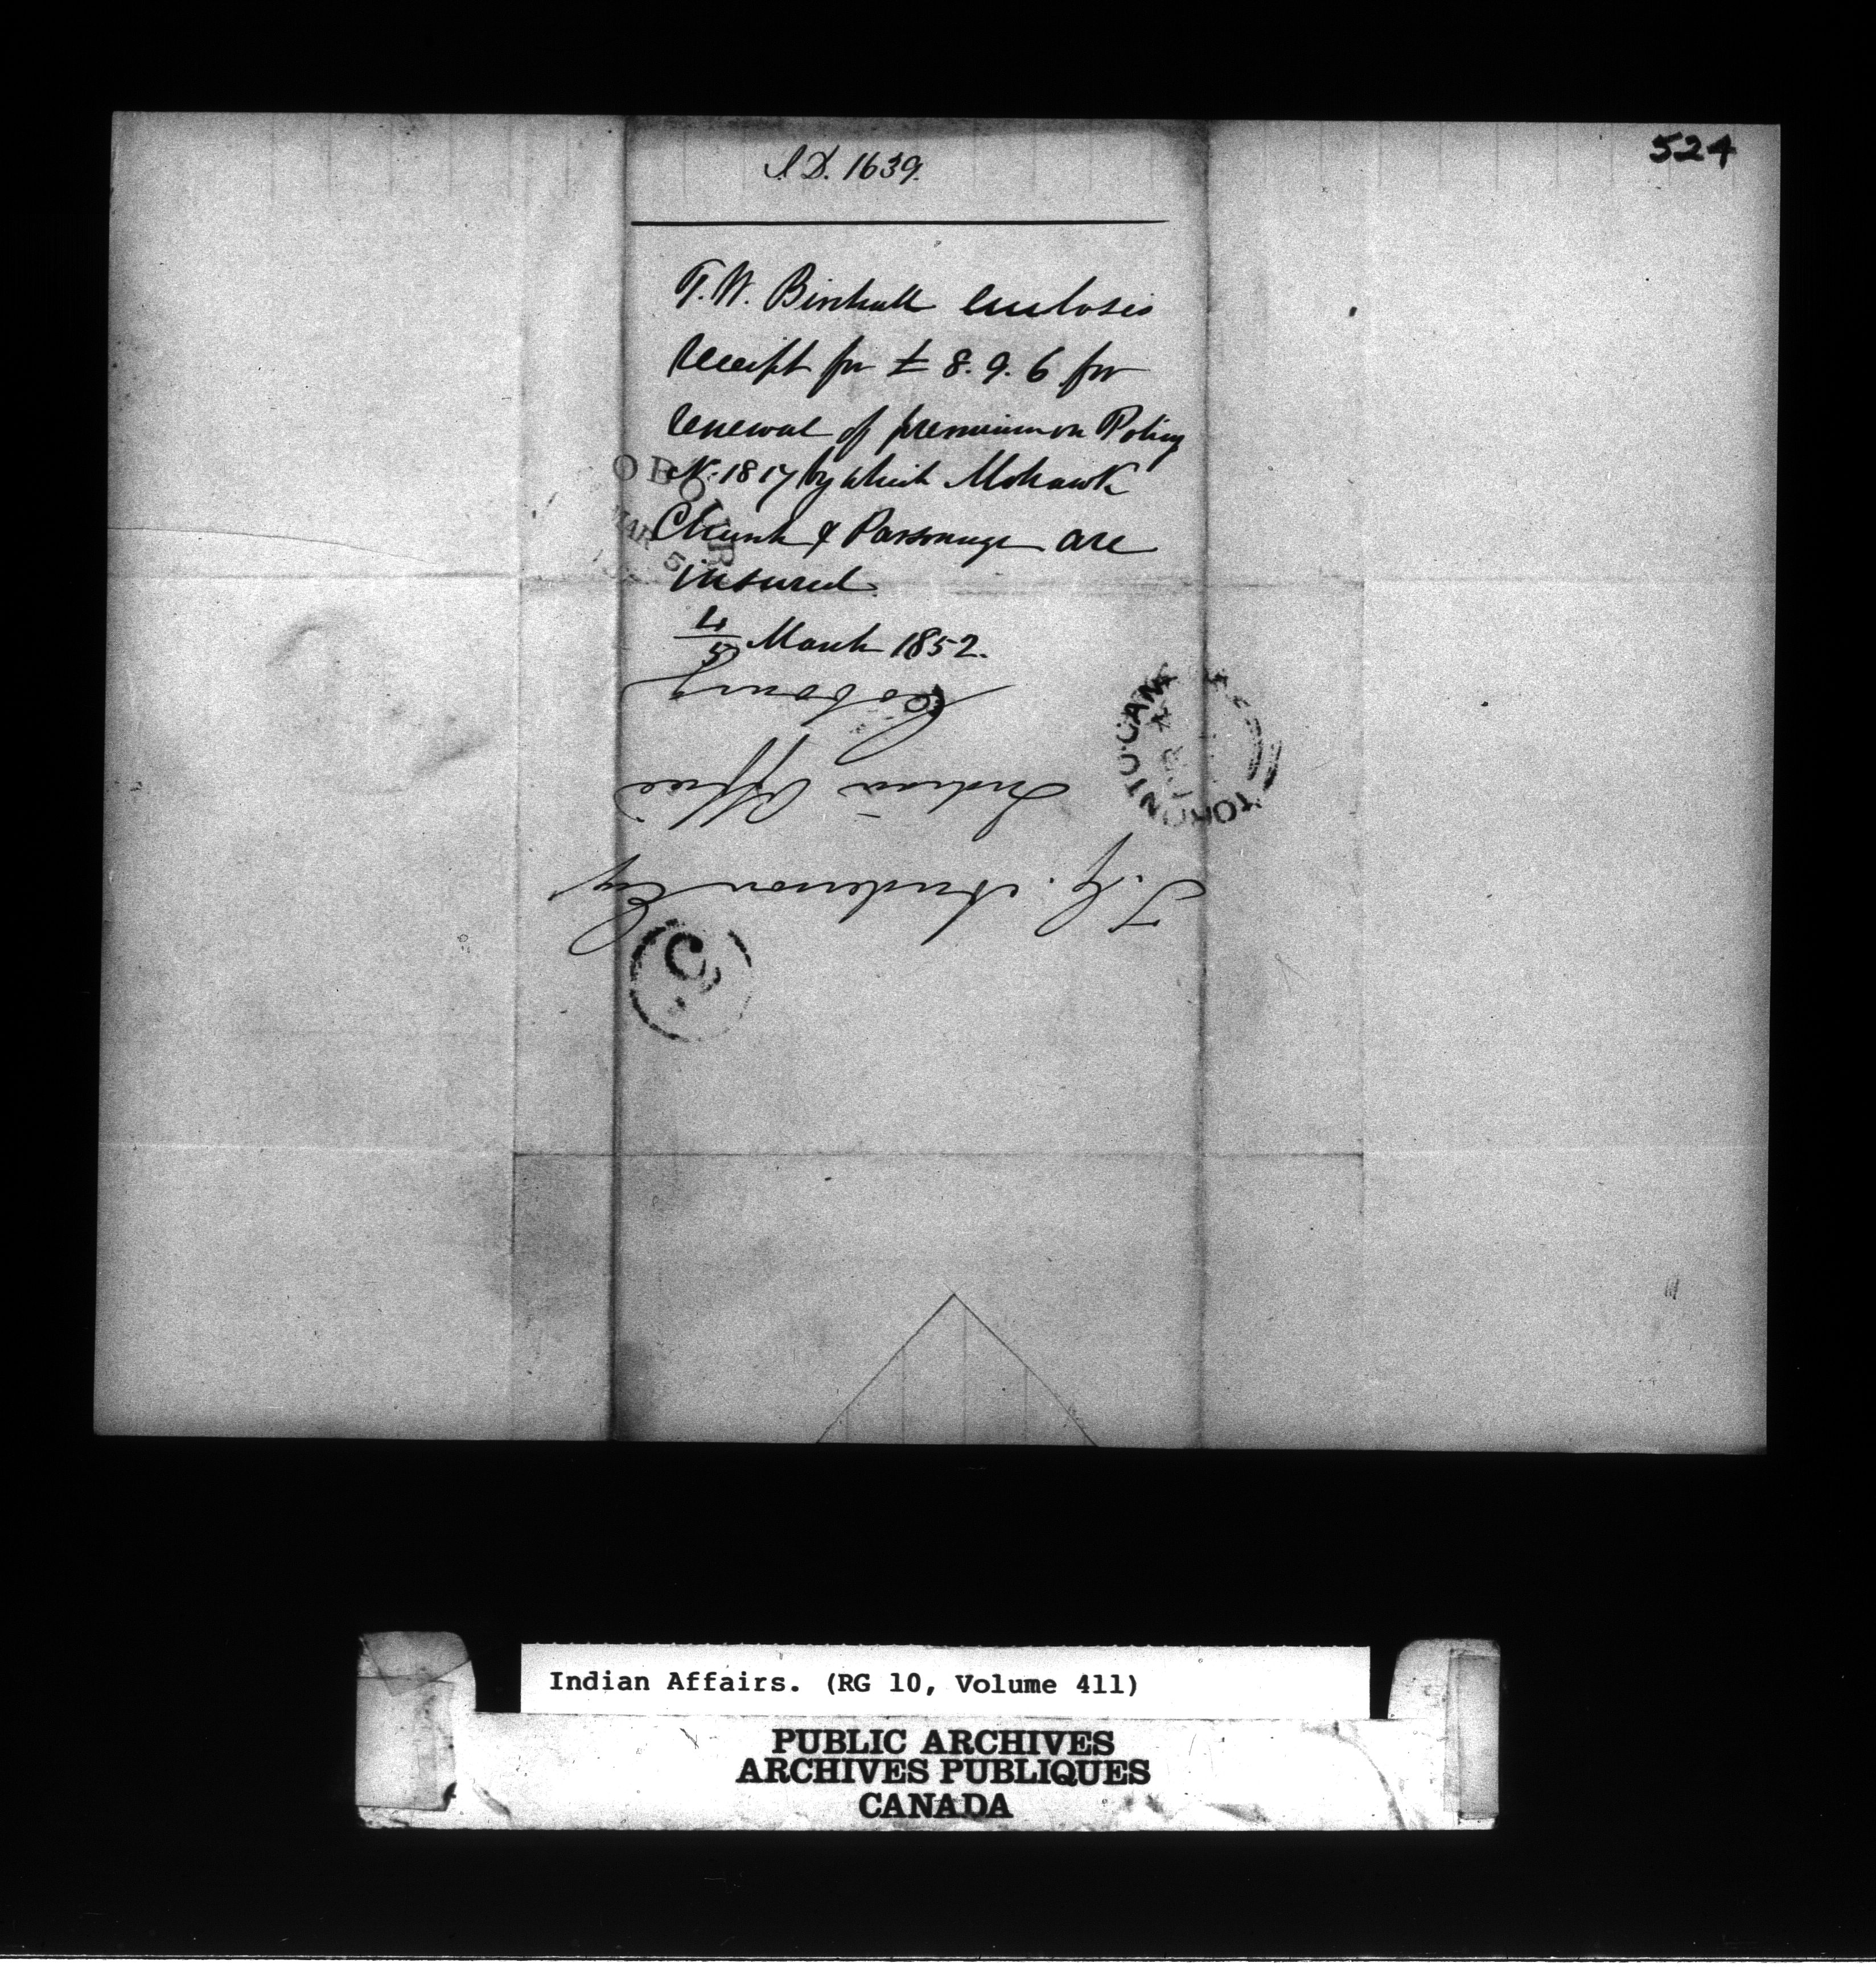 524
I.D. 1639.
T. W. Birchall encloses
receipt for £ 8. 9. 6 for
renewal of premium on Policy
No. 1817 by which Mohawk
Church & Parsonage are
insured.
4/5 March 1852.
OBOUR
MAR 5
T. G. Anderson Esq
Indian Office
Cobourg
TORONTO. CAN
Indian Affairs. (RG 10, Volume 411)
PUBLIC ARCHIVES
ARCHIVES PUBLIQUES
CANADA